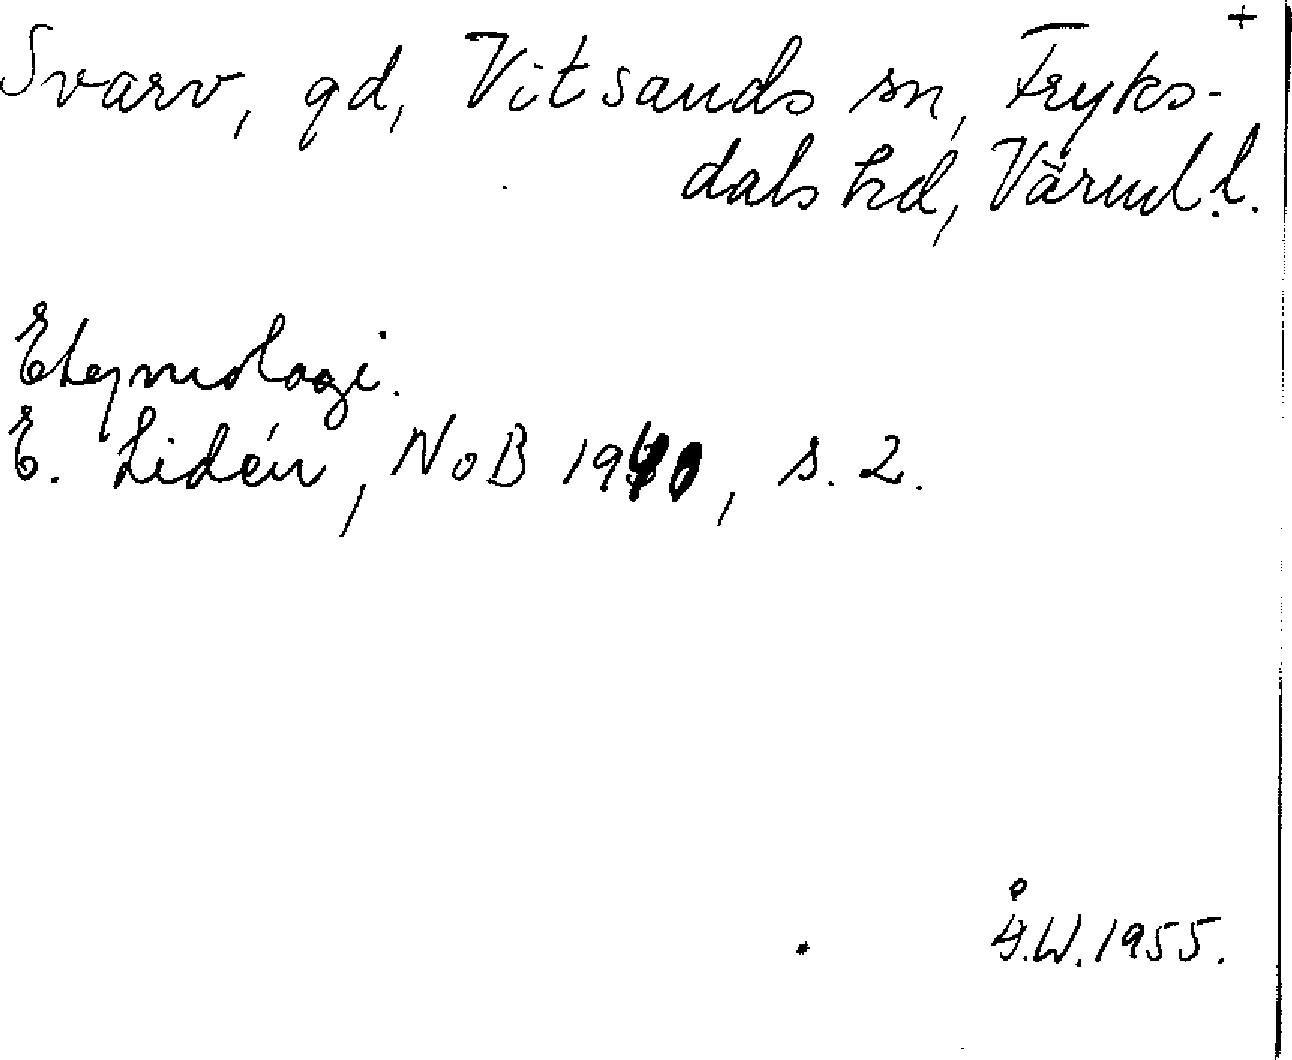 +
Svarv, gd, Vitsands sn, Fryks-
dals hd, Värml. l.
Etymologi.
E. Lidén, NoB 1910, s. 2.
Å.W. 1955.